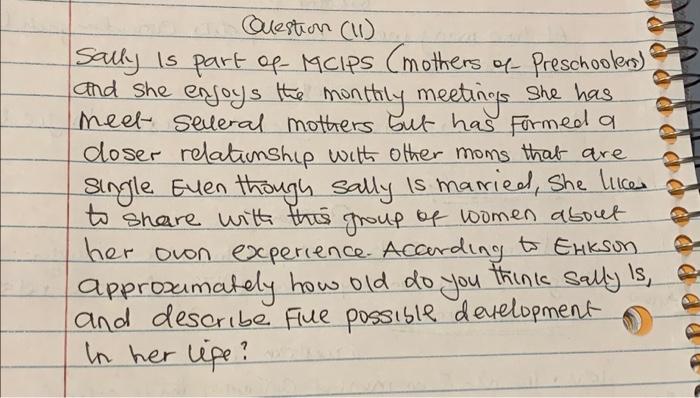 Question (11)
Sally Is part of MCIPS (mothers of Preschoolers)
and she enjoys the monthly meetings She has
meet several mothers but has formed a
closer relationship with other moms that are
single Even though Sally Is married, She likes
to share with this group of women about
her own experience. According to Erikson
approximately how old do you think Sally Is,
and describe Five possible development
In her life?